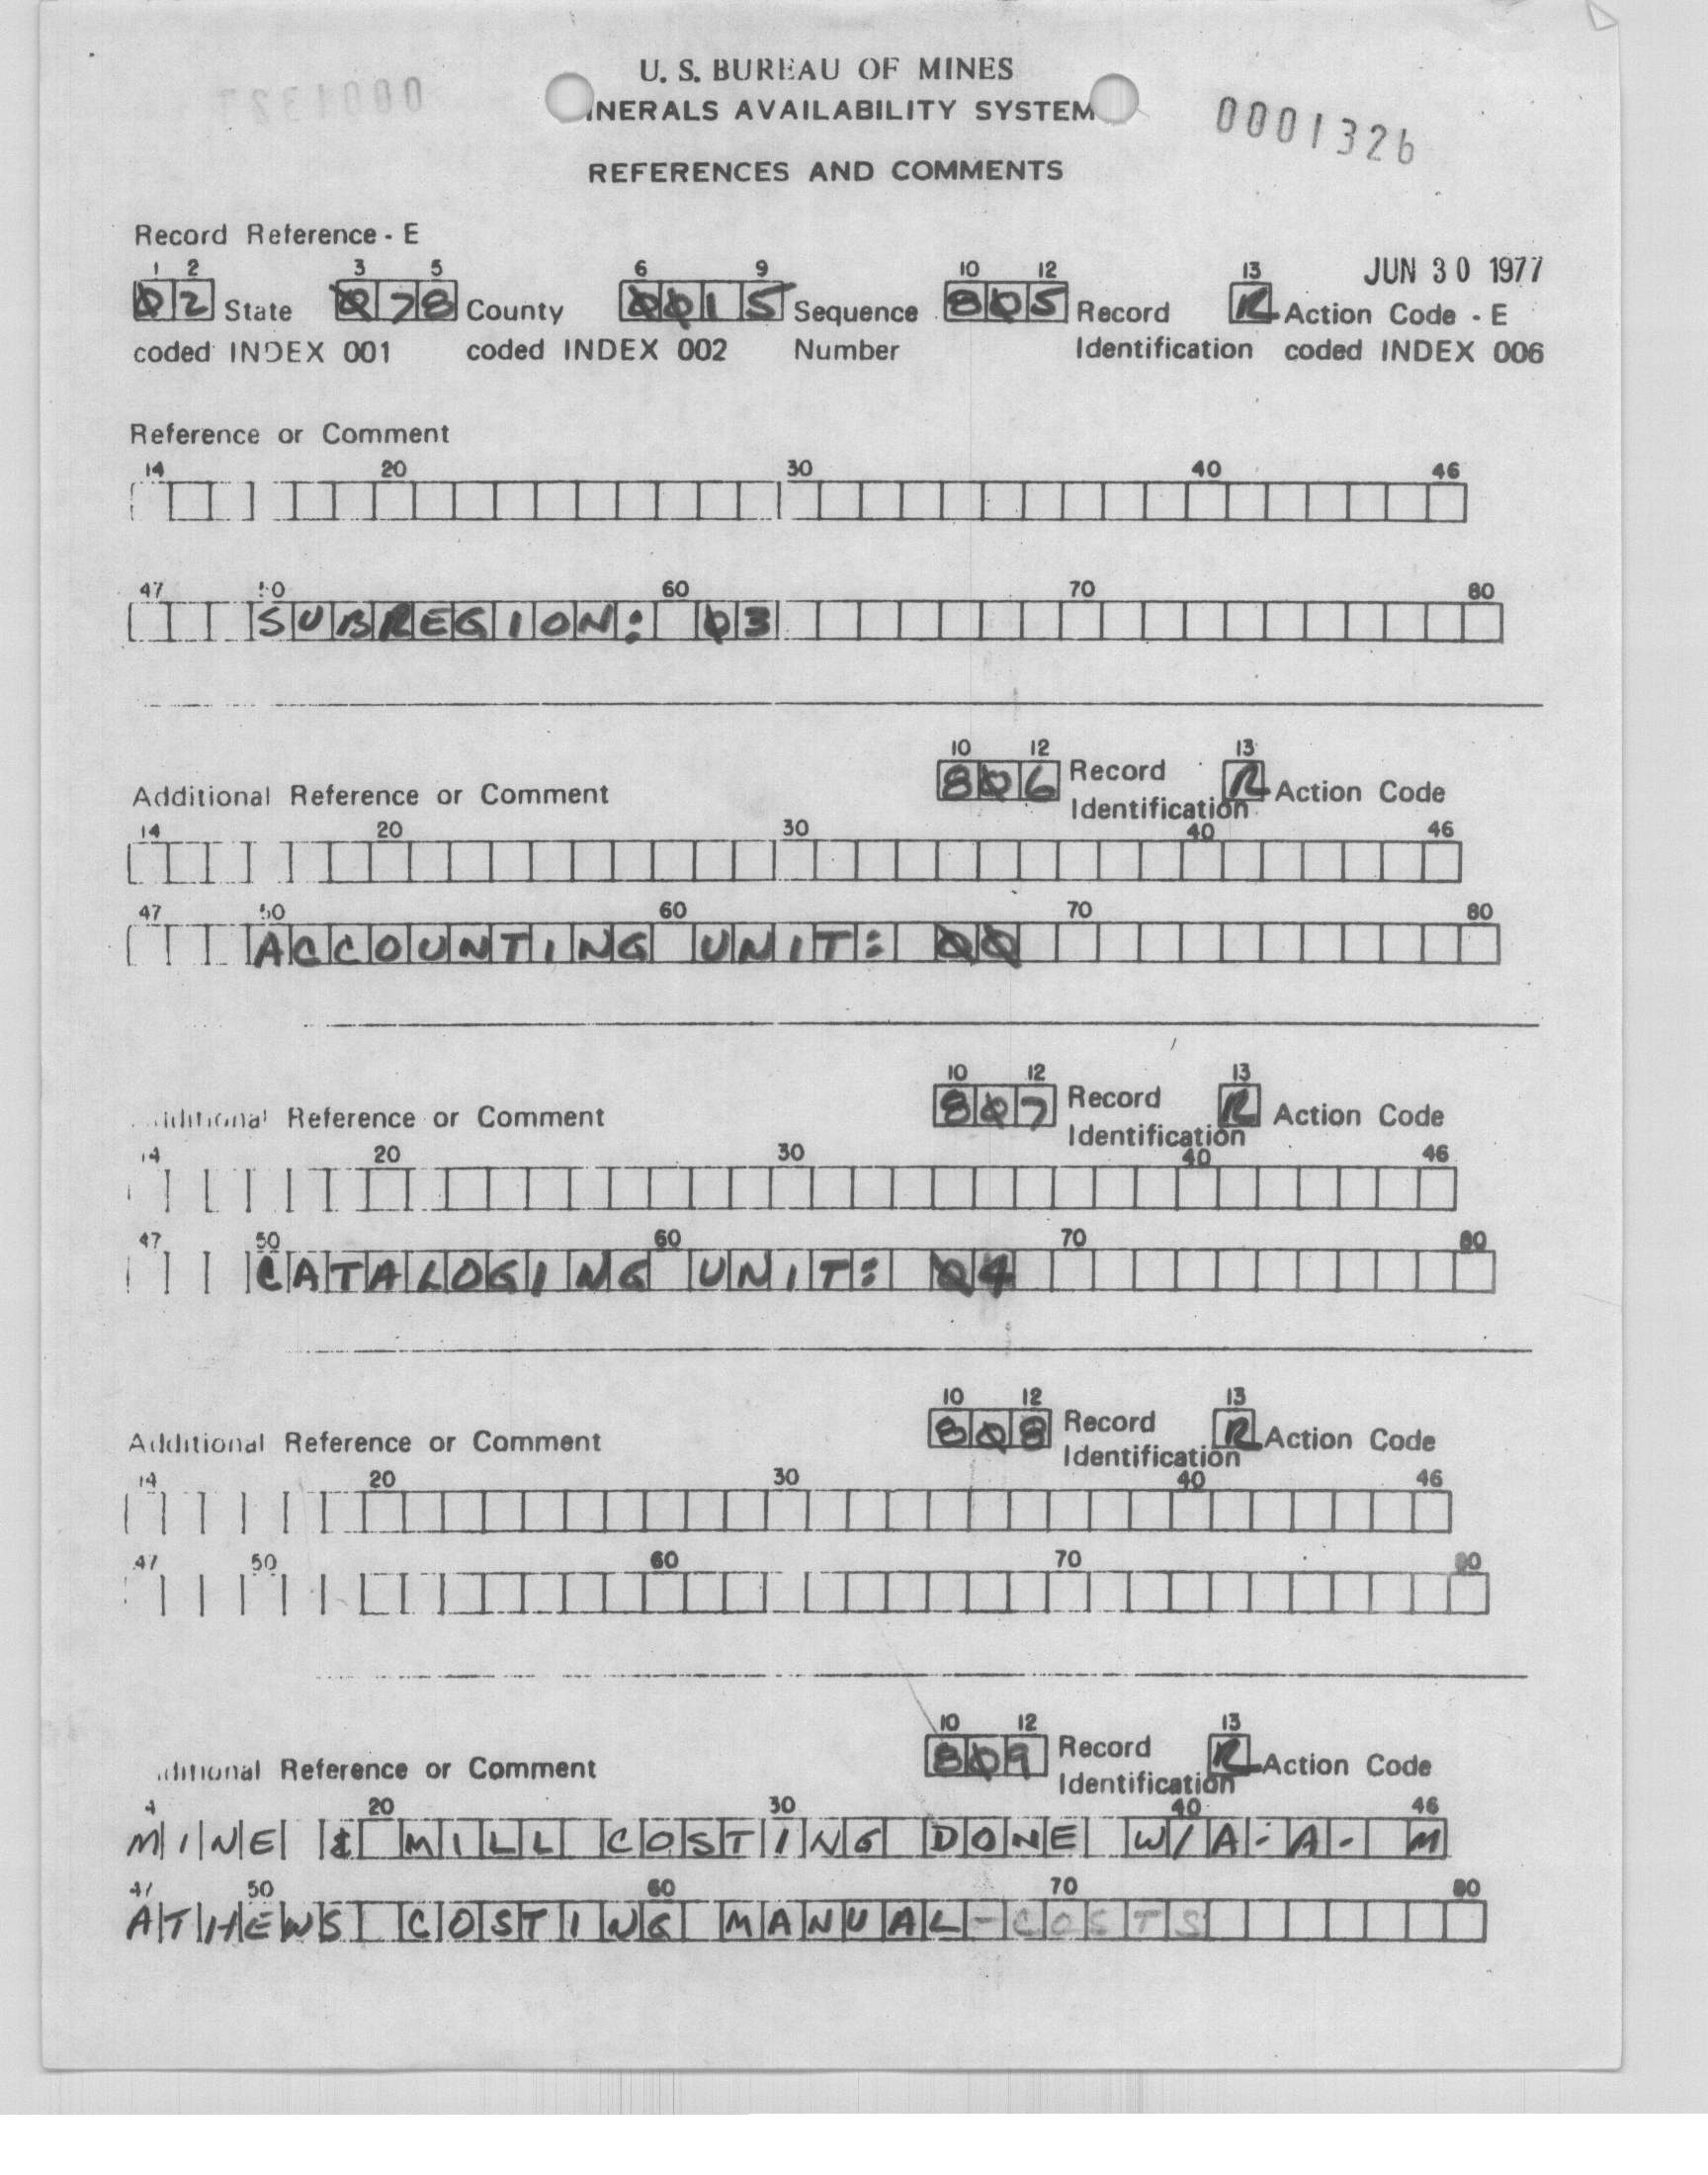 0001327
U. S. BUREAU OF MINES
INERALS AVAILABILITY SYSTEM
0001326
REFERENCES AND COMMENTS
Record Reference - E
JUN 30 1977
1 2 3 5 6 9 10 12 13
02 State 078 County 0015 Sequence 805 Record R Action Code - E
coded INDEX 001 coded INDEX 002 Number Identification coded INDEX 006
Reference or Comment
14 20 30 40 46
47 50 60 70 80
SUBREGION: 03
10 12 13
806 Record R Action Code
Additional Reference or Comment Identification
14 20 30 40 46
47 50 60 70 80
ACCOUNTING UNIT: 00
10 12 13
807 Record R Action Code
Additional Reference or Comment Identification
14 20 30 40 46
47 50 60 70 80
CATALOGING UNIT: 04
10 12 13
808 Record R Action Code
Additional Reference or Comment Identification
14 20 30 40 46
47 50 60 70 80
10 12 13
809 Record R Action Code
ditional Reference or Comment Identification
4 20 30 40 46
MINE & MILL COSTING DONE W/A.A. M
47 50 60 70 80
ATHEWS COSTING MANUAL-COSTS